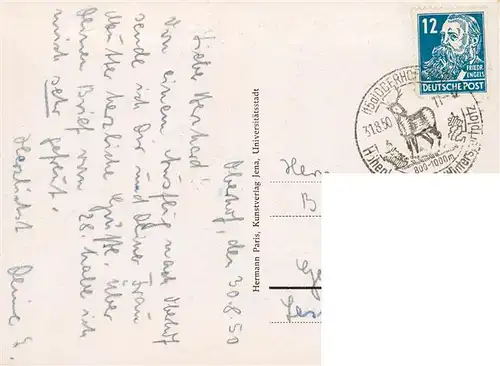 Oberhof, den 30.8.50
Lieber Herrhard!
Von einem Ausflug nach Oberhof
sende ich Dir und Deiner Frau
Mutter herzliche Grüße. Über
Deinen Brief vom 28. habe ich
mich sehr gefreut.
Herzlichst Deine
Hermann Paris, Kunstverlag Jena, Universitätsstadt
12
FRIEDR.
ENGELS
DEUTSCHE POST
OBERHOF
31.8.50
800-1000m
Her
B